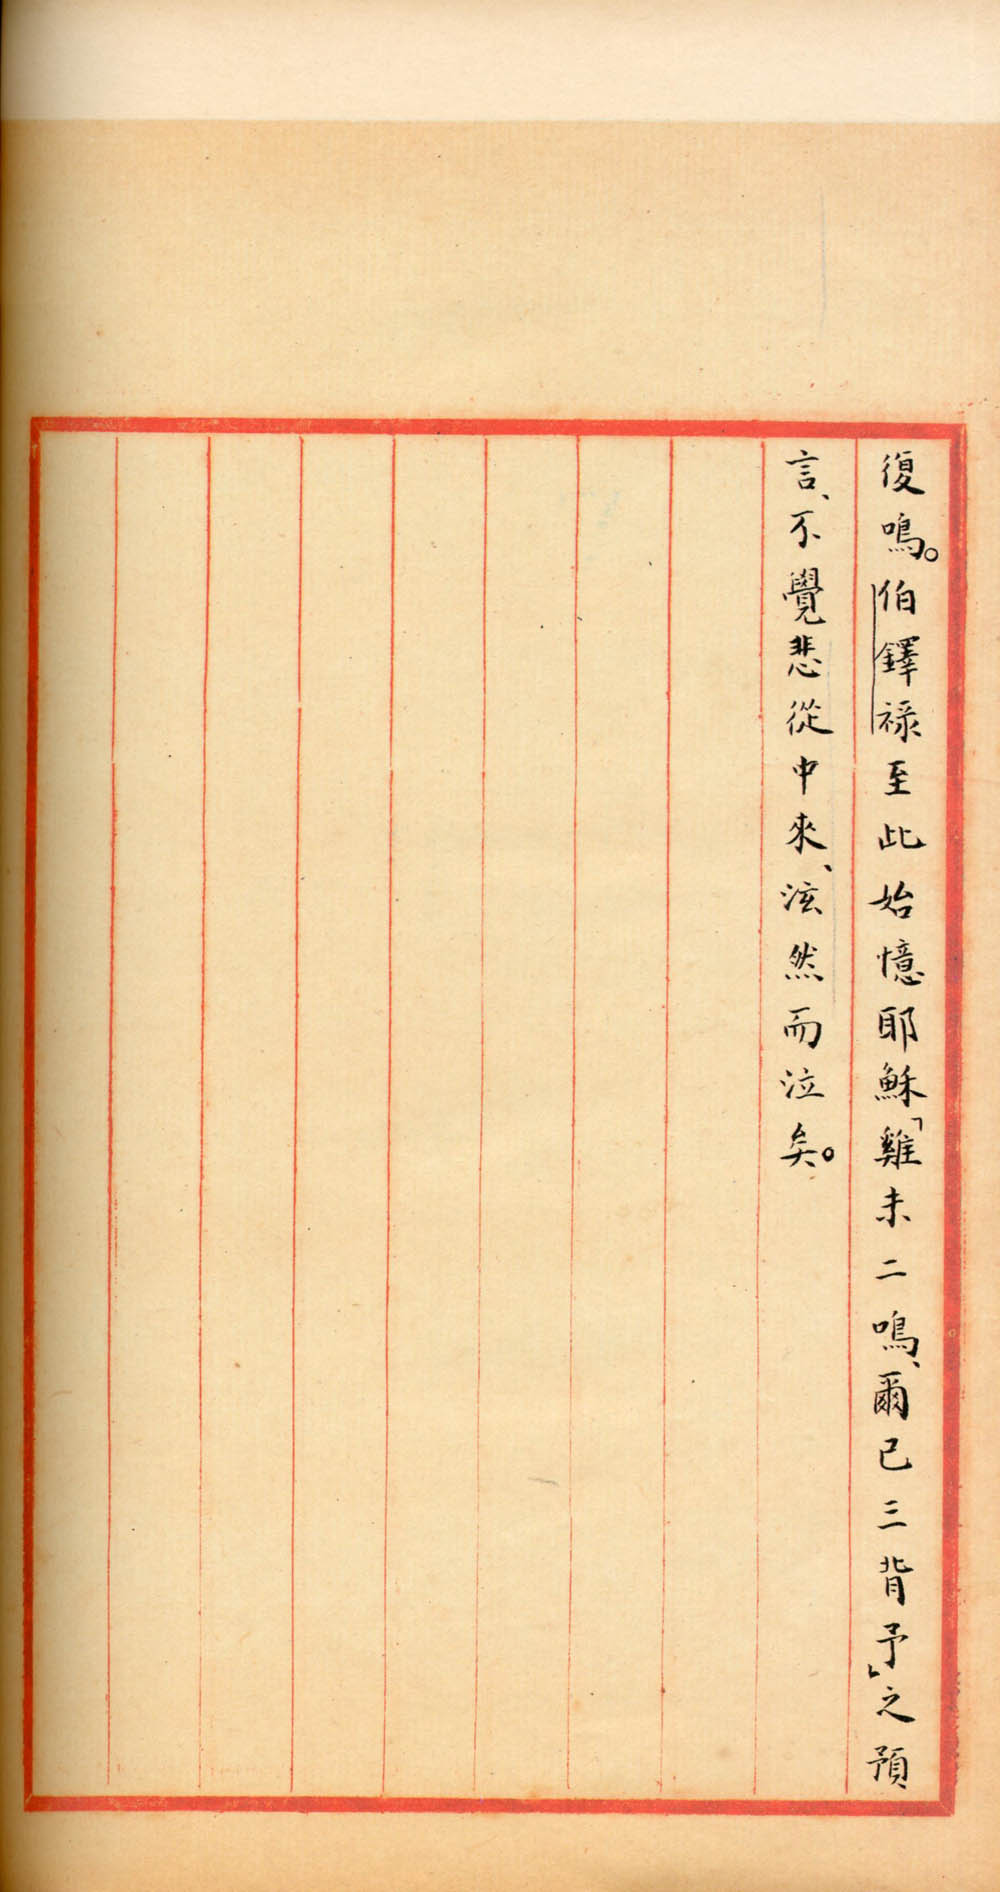 復鳴。伯鐸祿至此始憶耶穌「雞未二鳴、爾已三背予」之預
言、不覺悲從中來、泫然而泣矣。